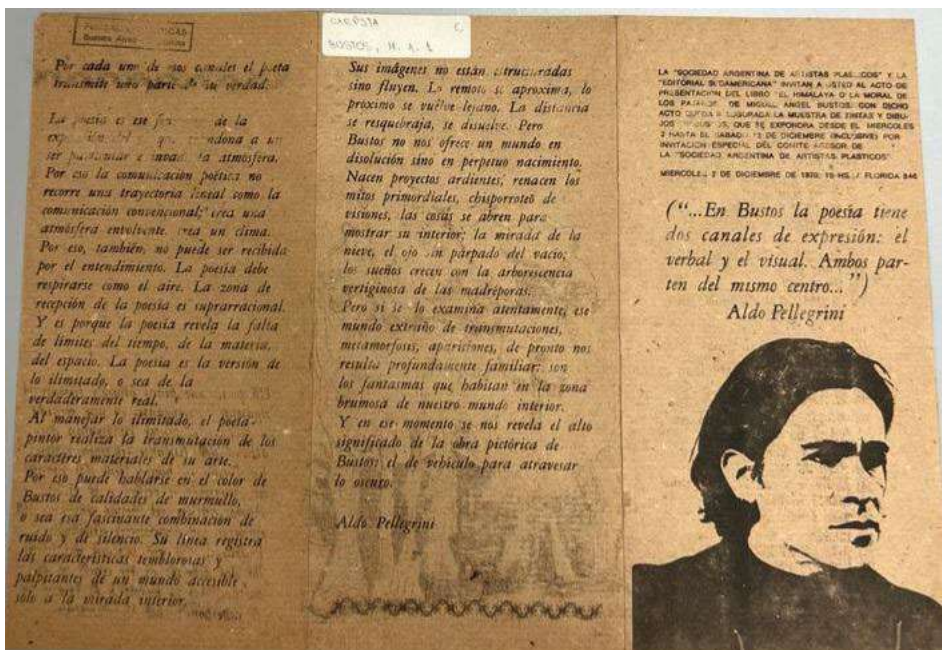 Buenos Aires
CARPETA
C
BUSTOS, M. A. 1
Por cada uno de esos canales el poeta
transmite una parte de su verdad.
La poesía es ese de la
a un
ser particular e invade la atmósfera.
Por eso la comunicación poética no
recorre una trayectoria lineal como la
comunicación convencional; crea una
atmósfera envolvente, crea un clima.
Por eso, también, no puede ser recibida
por el entendimiento. La poesía debe
respirarse como el aire. La zona de
recepción de la poesía es suprarracional.
Y es porque la poesía revela la falta
de límites del tiempo, de la materia,
del espacio. La poesía es la versión de
lo ilimitado, o sea de la
verdaderamente real.
Al manejar lo ilimitado, el poeta-
pintor realiza la transmutación de los
caracteres materiales de su arte.
Por eso puede hablarse en el color de
Bustos de calidades de murmullo,
o sea esa fascinante combinación de
ruido y de silencio. Su línea registra
las características temblorosas y
palpitantes de un mundo accesible
sólo a la mirada interior.
Sus imágenes no están estructuradas
sino fluyen. Lo remoto se aproxima, lo
próximo se vuelve lejano. La distancia
se resquebraja, se disuelve. Pero
Bustos no nos ofrece un mundo en
disolución sino en perpetuo nacimiento.
Nacen proyectos ardientes, renacen los
mitos primordiales, chisporroteo de
visiones, las cosas se abren para
mostrar su interior; la mirada de la
nieve, el ojo sin párpado del vacío;
los sueños crecen con la arborescencia
vertiginosa de las madréporas.
Pero si se lo examina atentamente, ese
mundo extraño de transmutaciones,
metamorfosis, apariciones, de pronto nos
resulta profundamente familiar: son
los fantasmas que habitan en la zona
brumosa de nuestro mundo interior.
Y en ese momento se nos revela el alto
significado de la obra pictórica de
Bustos: el de vehículo para atravesar
lo oscuro.
Aldo Pellegrini
LA "SOCIEDAD ARGENTINA DE ARTISTAS PLASTICOS" Y LA
"EDITORIAL SUDAMERICANA" INVITAN A USTED AL ACTO DE
PRESENTACION DEL LIBRO "EL HIMALAYA O LA MORAL DE
LOS PAJAROS" DE MIGUEL ANGEL BUSTOS. CON DICHO
ACTO QUEDA INAUGURADA LA MUESTRA DE TINTAS Y DIBU-
JOS DE BUSTOS, QUE SE EXPONDRA DESDE EL MIERCOLES
2 HASTA EL SABADO 12 DE DICIEMBRE (INCLUSIVE) POR
INVITACION ESPECIAL DEL COMITE ASESOR DE
LA "SOCIEDAD ARGENTINA DE ARTISTAS PLASTICOS"
MIERCOLES 2 DE DICIEMBRE DE 1970, 19 HS. / FLORIDA 846
("...En Bustos la poesía tiene
dos canales de expresión: el
verbal y el visual. Ambos par-
ten del mismo centro...")
Aldo Pellegrini